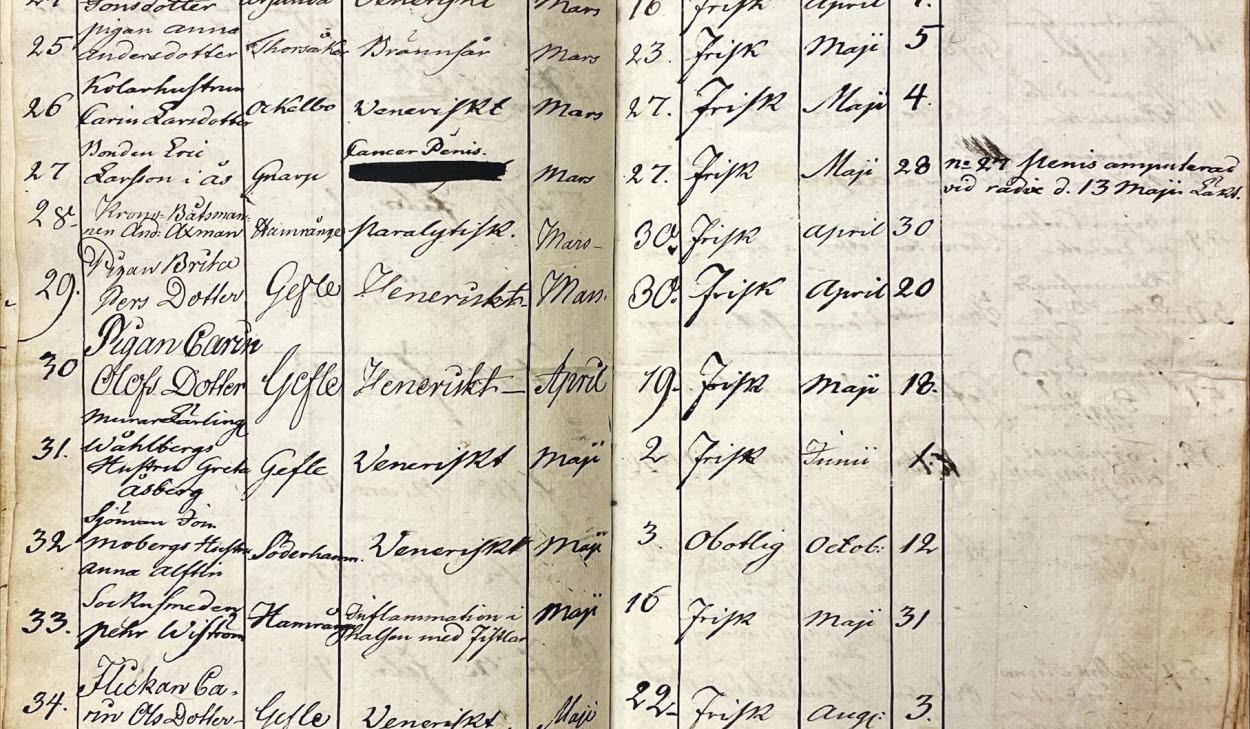 24 Jonsdotter Veneriskt Mars 16 Frisk April 1.
pigan Anna
25 Andersdotter Thorsåker Brännsår Mars 23. Frisk Maji 5
Kolarhustrun
26 Carin Larsdotter Ockelbo Veneriskt Mars 27. Frisk Maji 4.
Bonden Eric Cancer Penis.
27 Larsson i ås Gnarp Mars 27. Frisk Maji 28 no 27 Penis amputerad
vid radix d. 13 Maji.
28. Krono-Båtsman-
nen And: Axman Hamrånge Paralytisk. Mars- 30. Frisk April 30
Pigan Brita
29. Pers Dotter Gefle Veneriskt- Mars 30. Frisk April 20
Pigan Carin
30 Olofs Dotter Gefle Veneriskt- April 19- Frisk Maji 18.
Murar Lärling
31. Wåhlbergs
Hustru Greta Gefle Veneriskt Maji 2 Frisk Junii
Åsberg
Sjöman Jon
32 Mobergs Hustru Söderhamn. Veneriskt Maji 3. Obotlig Octob: 12
Anna Alftin
Sockusmeden Inflammation i
33. Pehr Wiström Hamrånge halsen med Fistlar Maji 16 Frisk Maji 31
Flickan Ca-
34. rin Ols Dotter- Gefle Veneriskt Maji 22- Frisk Aug: 3.